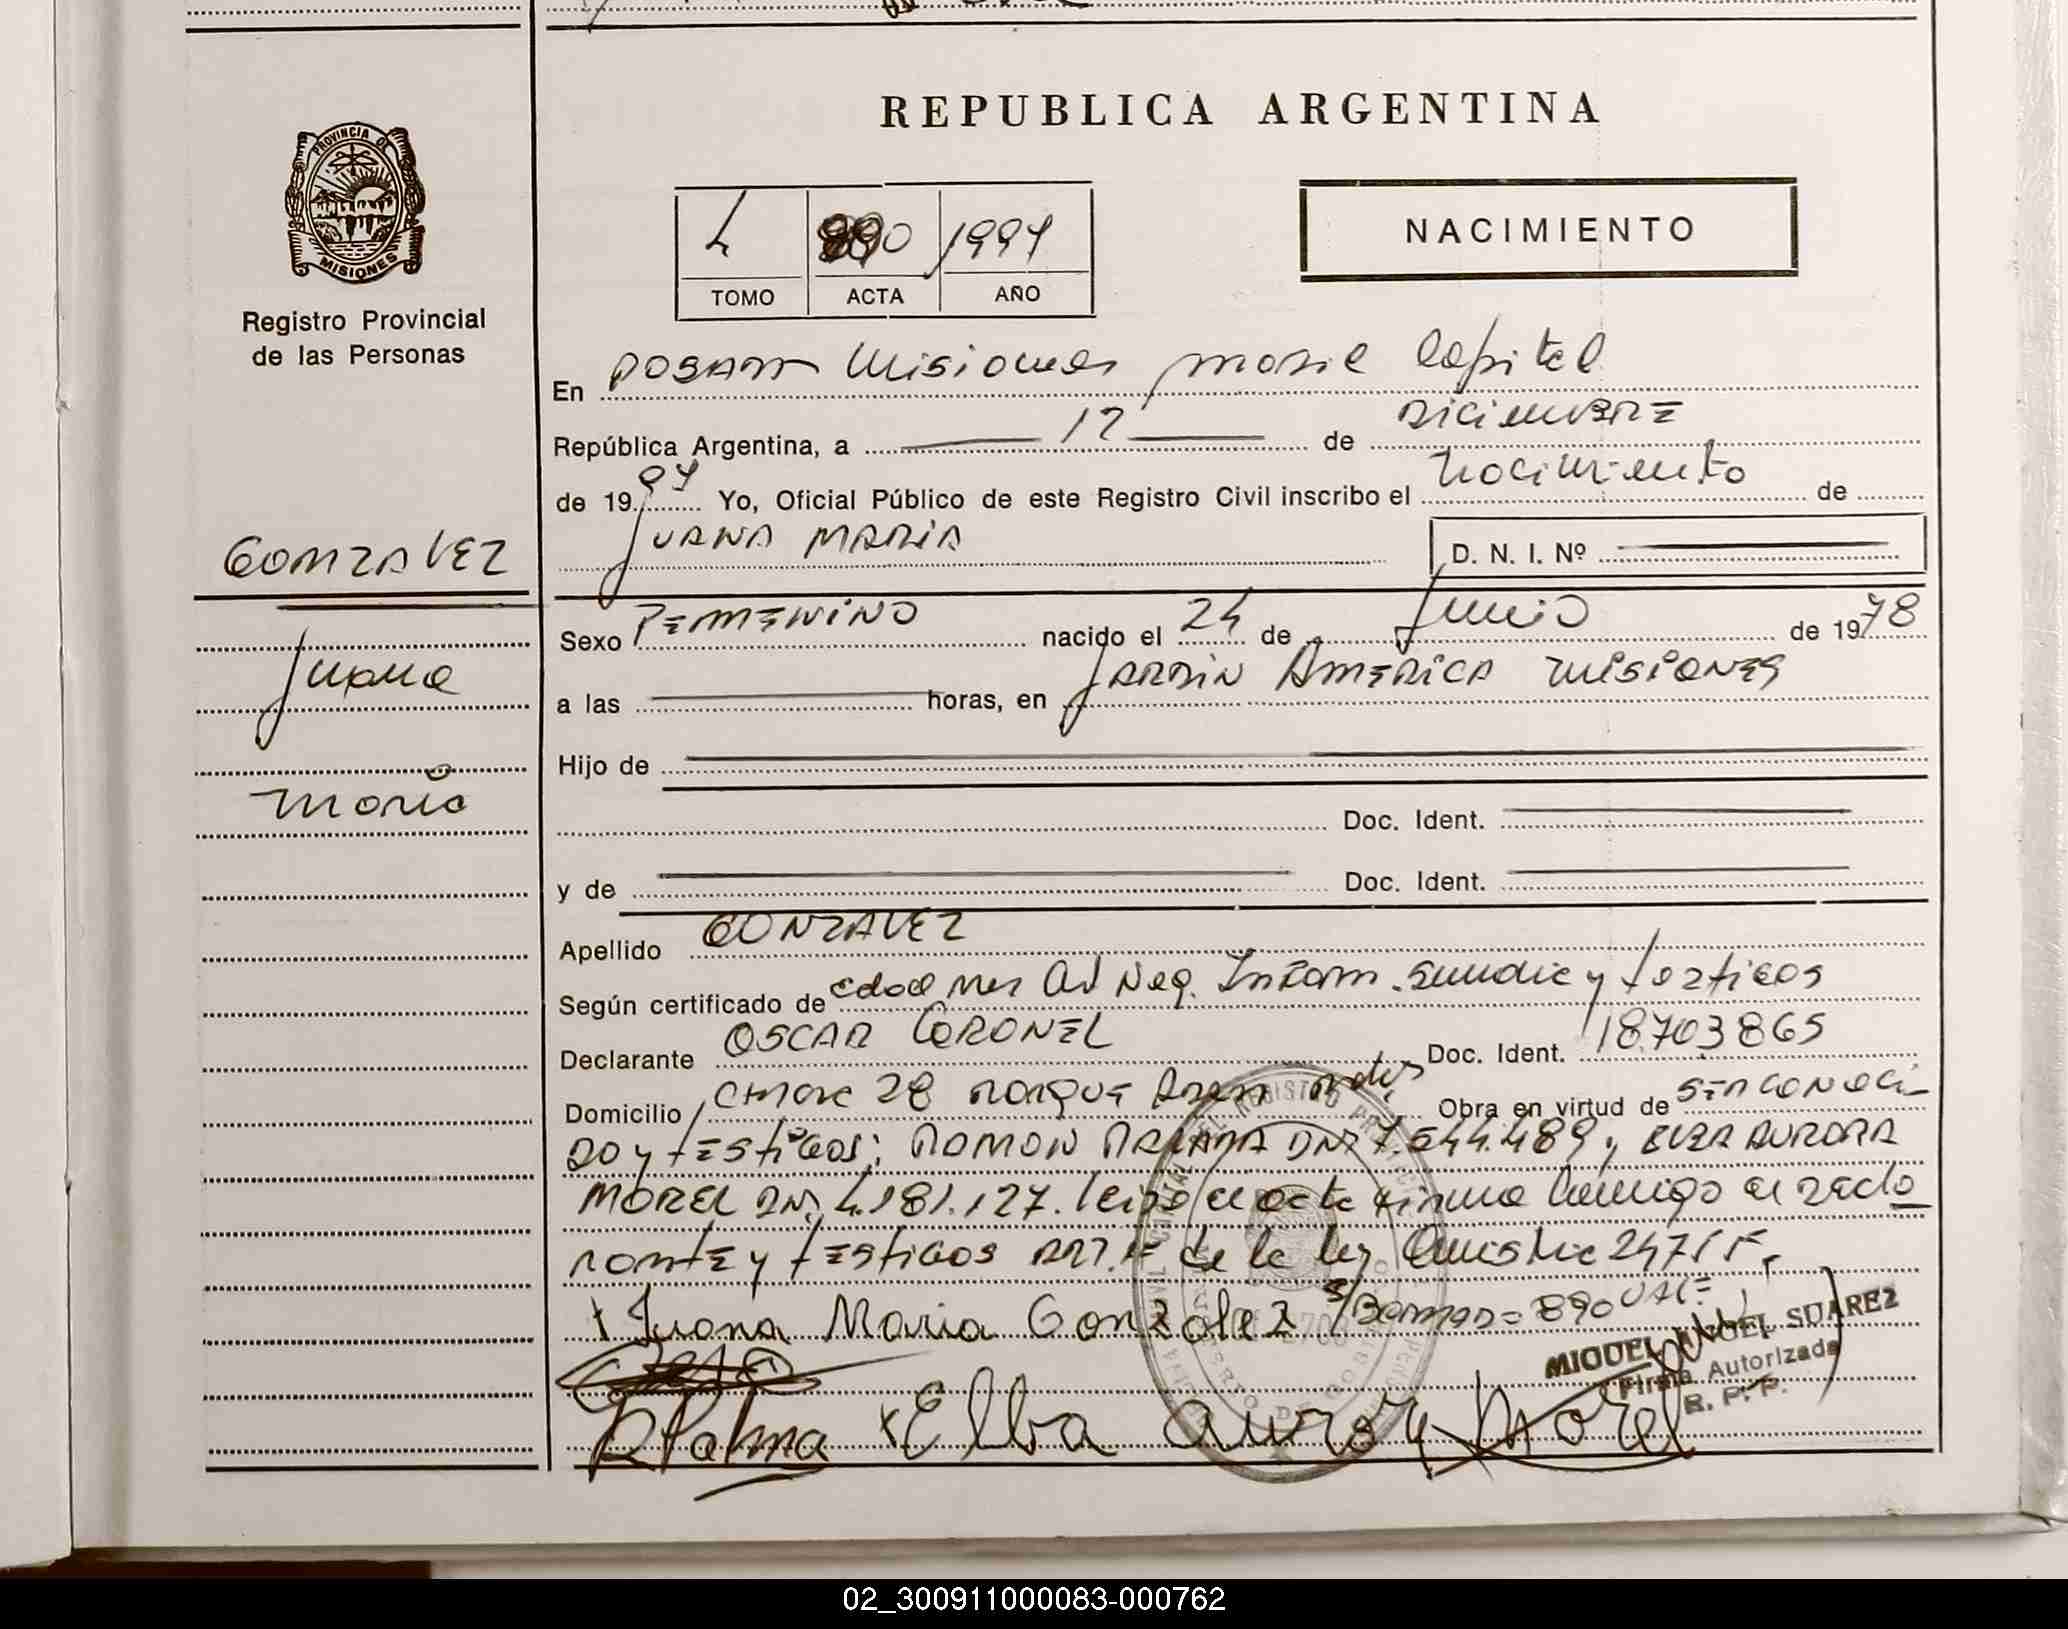 REPUBLICA ARGENTINA
PROVINCIA DE
MISIONES
Registro Provincial
de las Personas
NACIMIENTO
4 890 1997
TOMO ACTA AÑO
En Misiones Capital
República Argentina, a 12 de Diciembre
de 1997 Yo, Oficial Público de este Registro Civil inscribo el nacimiento de
JUANA MARIA D. N. I. Nº
GONZALEZ
Juana
Maria
Sexo FEMENINO nacido el 24 de Junio de 1978
a las horas, en JARDIN AMERICA MISIONES
Hijo de
Doc. Ident.
y de Doc. Ident.
Apellido GONZALEZ
Según certificado de Neg. Inform. y testigos
Declarante OSCAR CORONEL Doc. Ident. 18.703.865
Domicilio 28 Obra en virtud de
DO y testigos: ROMON DNI 7.544.489 y ELBA AURORA
MOREL DNI 4.181.127. Leida el acta firma conmigo el
y testigos ART. de la ley
Juana Maria Gonzalez S/Borrado = 890 VALE
MIGUEL ANGEL SUAREZ
Firma Autorizada
R. P. P.
Elba aurora Morel
02_300911000083-000762